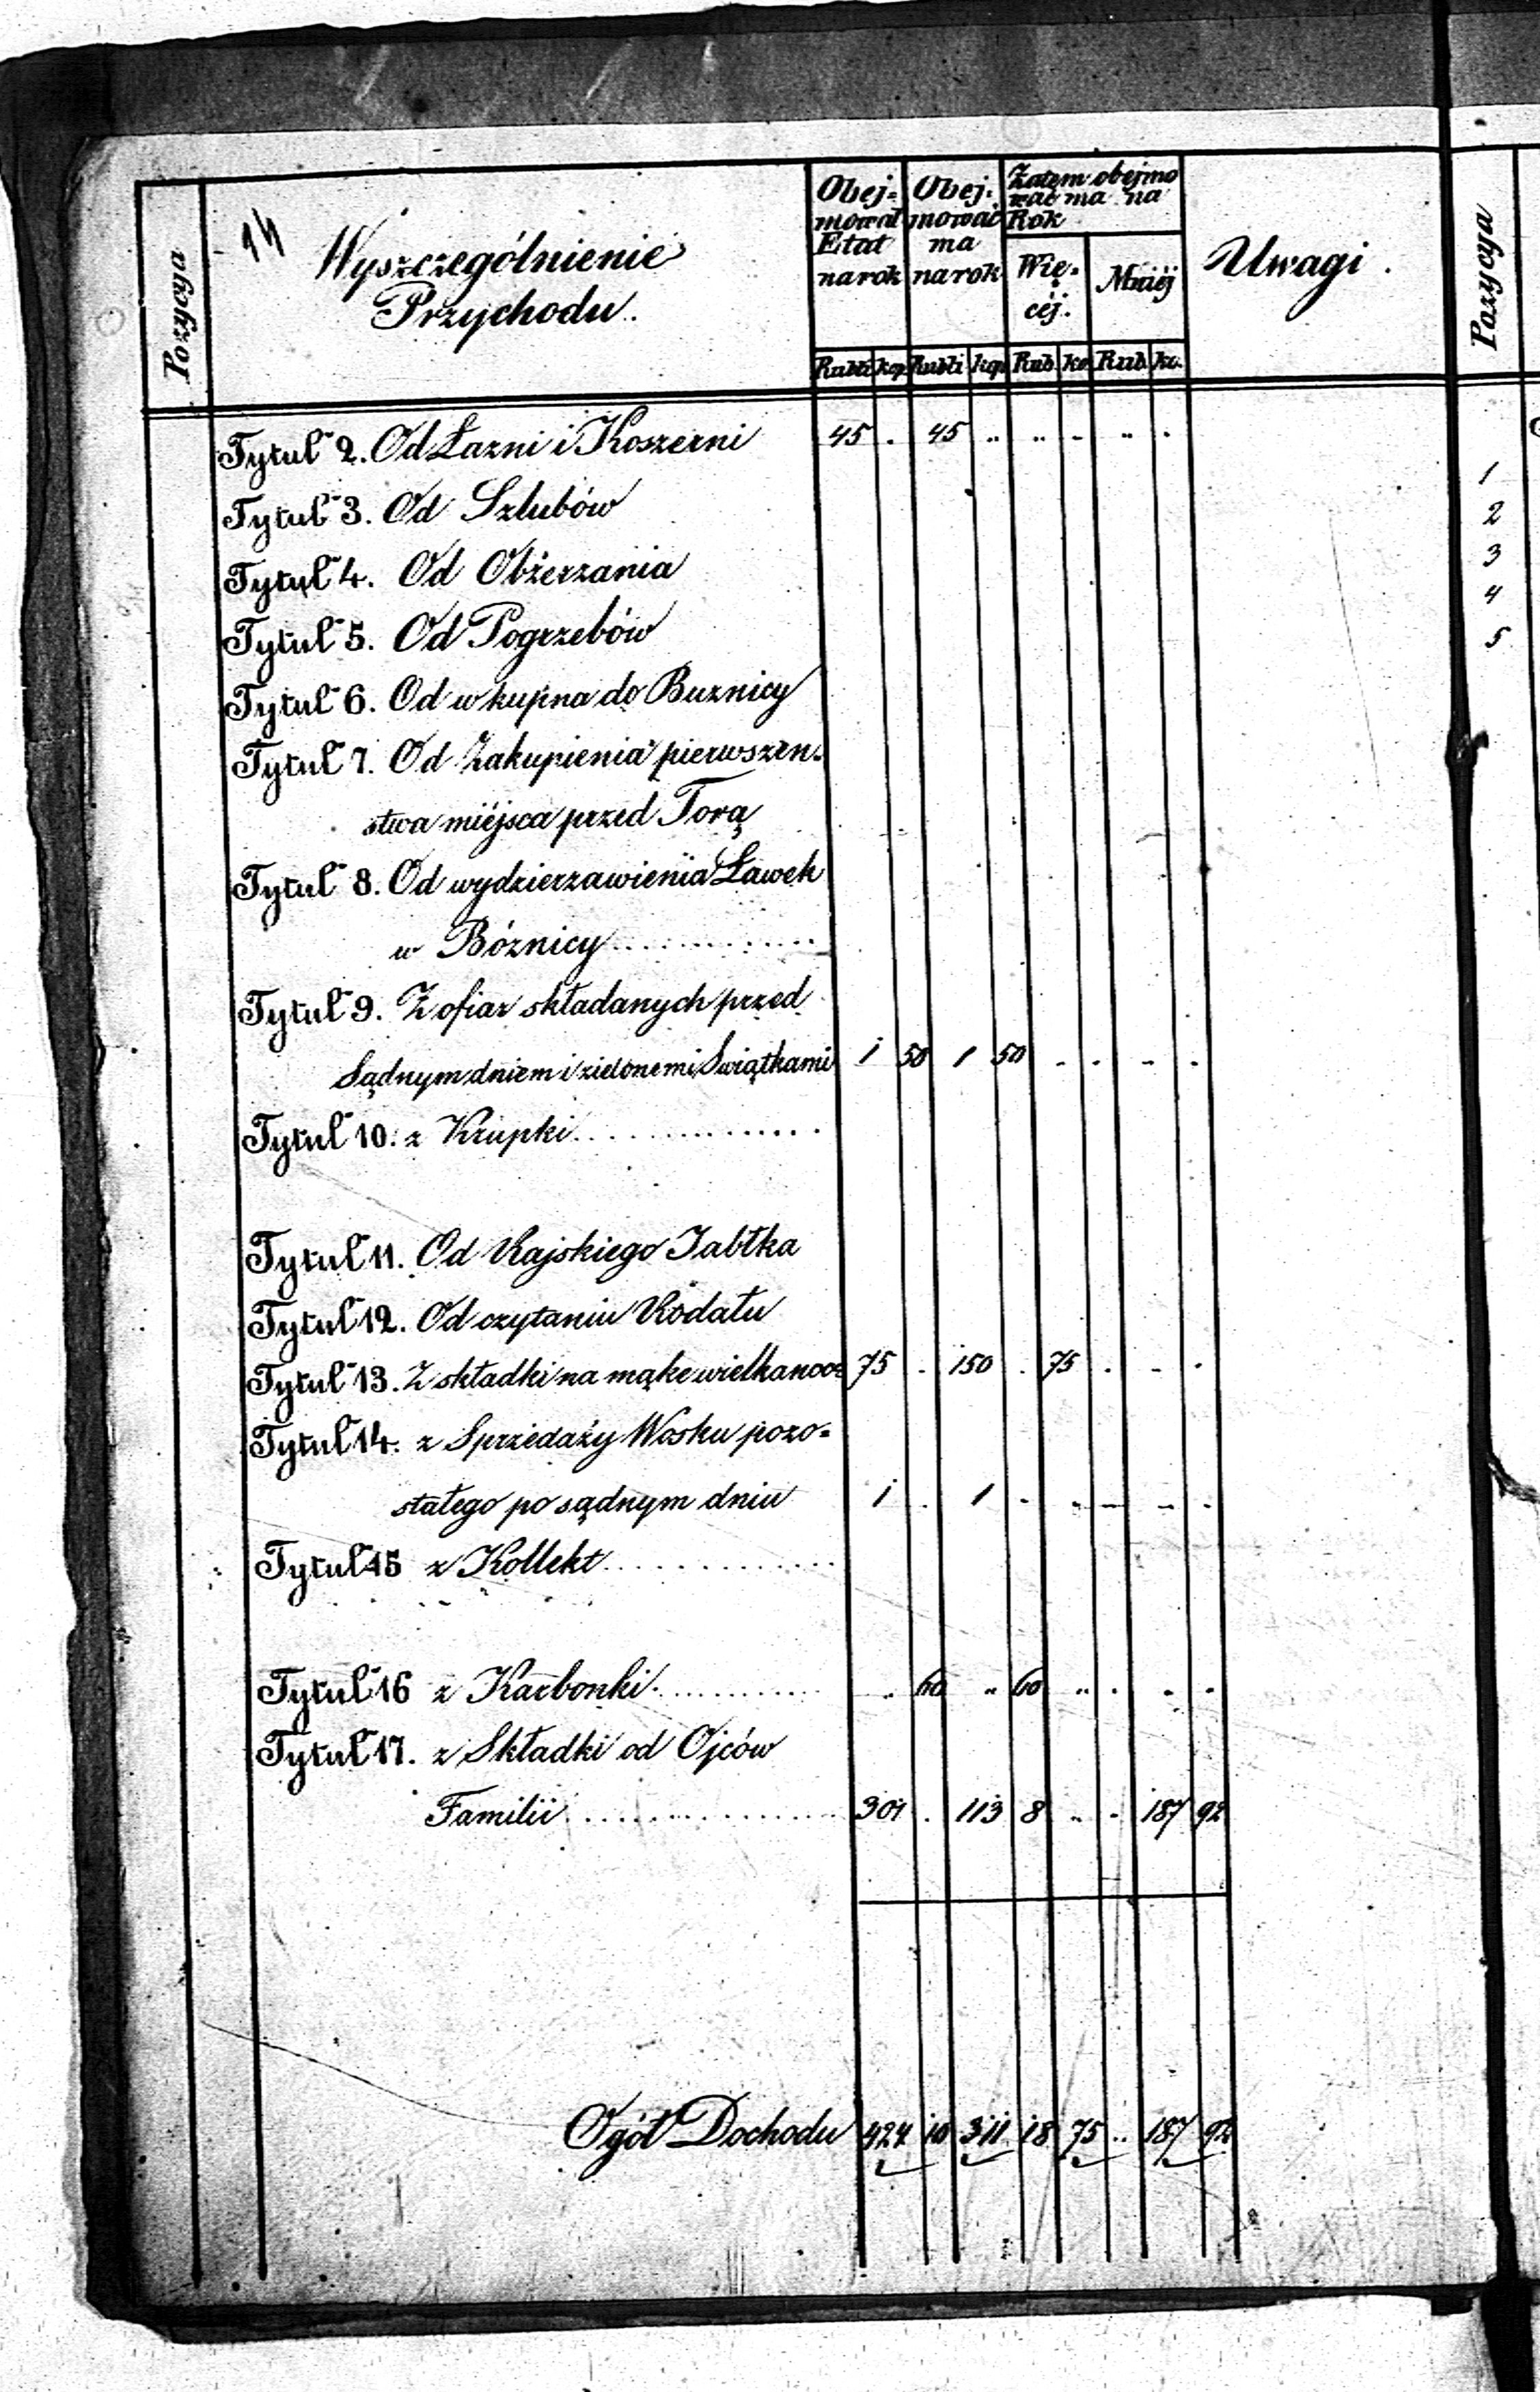 14
Pozycya
Wyszczególnienie
Przychodu.
Obej=
mował
Etat
na rok
Obej=
mować
ma
na rok
Zatem obejmo
wać ma na
Rok
Wię=
céj.
Mniéj
Uwagi.
Pozycya
Rubli kop Rubli kop Rub. ko. Rub. ko.
Tytuł 2. Od Łazni i Koszerni 45 . 45 .. .. - .. .
Tytuł 3. Od Szlubów
Tytuł 4. Od Obżerzania
Tytuł 5. Od Pogrzebów
Tytuł 6. Od wkupna do Buznicy
Tytuł 7. Od Zakupienia pierwszen=
stwa miéjsca przed Torą
Tytuł 8. Od wydzierzawienia Ławek
w Bóznicy
Tytuł 9. Z ofiar składanych przed
Sądnym dniem i zielonemi Swiątkami 1 50 1 50 - - - -
Tytuł 10. z Krupki
Tytuł 11. Od Rajskiego Jabłka
Tytuł 12. Od czytaniu Rodału
Tytuł 13. Z składki na mąke wielkanoc 75 . 150 . 75 . - .
Tytuł 14. z Sprzedaży Wosku pozo=
stałego po sądnym dniu 1 . 1 - - - - -
Tytuł 15 z Kollekt
Tytuł 16 z Karbonki .. 60 .. 60 .. . . .
Tytuł 17. z Składki od Ojców
Familii 301 . 113 8 .. . 187 92
Ogół Dochodu 424 10 311 18 75 .. 187 92
1
2
3
4
5